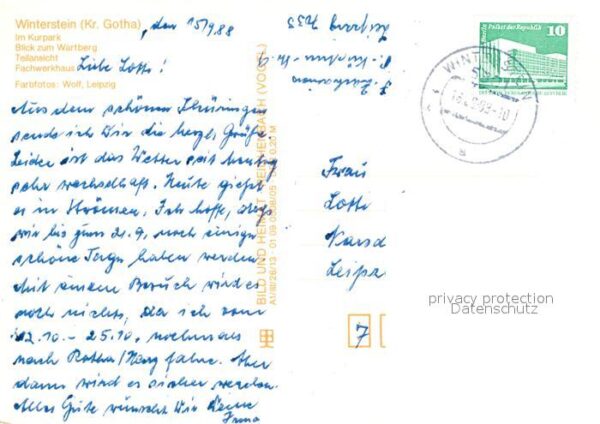 Winterstein (Kr. Gotha)
Im Kurpark
Blick zum Wartberg
Teilansicht
Fachwerkhaus
Farbfotos: Wolf, Leipzig
, den 15/9.88
Liebe Lotte!
Aus dem schönen Thüringen
sende ich Dir die herzl. Grüße
Leider ist das Wetter seit heute
sehr wechselhaft. Heute gießt
es in Strömen. Ich hoffe, dass
wir bis zum 21.9. noch einige
schöne Tage haben werden
Mit einem Besuch wird es
noch nichts, da ich vom
12.10. - 25.10. nochmals
nach Harz fahre. Aber
dann wird es sicher werden.
Alles Gute wünscht Dir Deine
BILD UND HEIMAT REICHENBACH (VOGTL)
A1/III/26/13 01 09 05 0,20 M
Leipzig 7033
WINTERSTEIN
Berlin Palast der Republik
10
Frau
Lotte
Leipz
7
privacy protection
Datenschutz